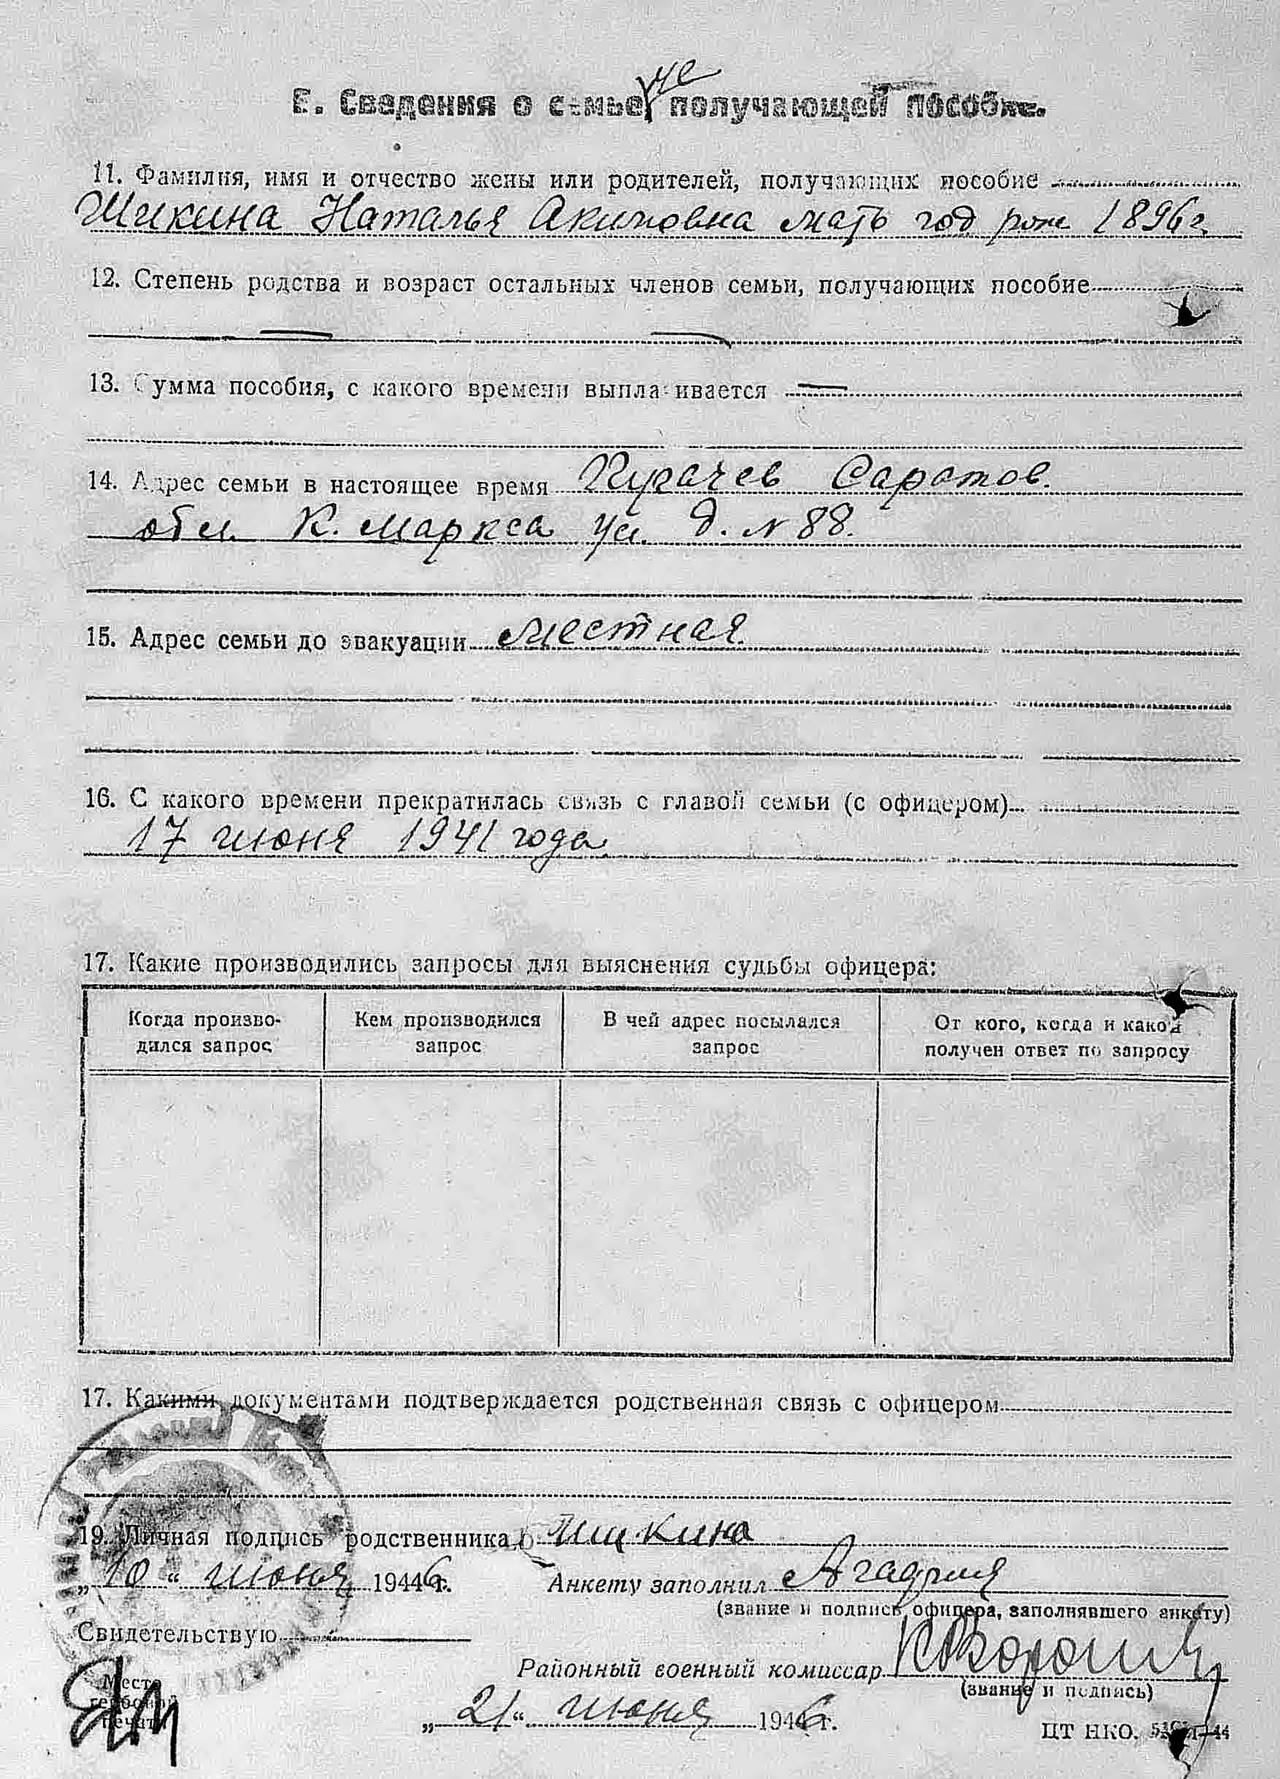 не
Е. Сведения о семье получающей пособие.
11. Фамилия, имя и отчество жены или родителей, получающих пособие
Шикина Наталья Акимовна мать год рож 1896 г.
12. Степень родства и возраст остальных членов семьи, получающих пособие
13. Сумма пособия, с какого времени выплачивается
14. Адрес семьи в настоящее время Пугачев Саратов.
обл. К. Маркса ул. д. № 88.
15. Адрес семьи до эвакуации местная
16. С какого времени прекратилась связь с главой семьи (с офицером)
17 июня 1941 года
17. Какие производились запросы для выяснения судьбы офицера:
Когда произво-
дился запрос
Кем производился
запрос
В чей адрес посылался
запрос
От кого, когда и какой
получен ответ по запросу
17. Какими документами подтверждается родственная связь с офицером
19. Личная подпись родственника Шикина
„10“ июня 1946 г. Анкету заполнил
(звание и подпись офицера, заполнявшего анкету)
Свидетельствую
Районный военный комиссар
(звание и подпись)
Место
гербовой
печати
„21“ июня 1946 г.
ЦТ НКО.